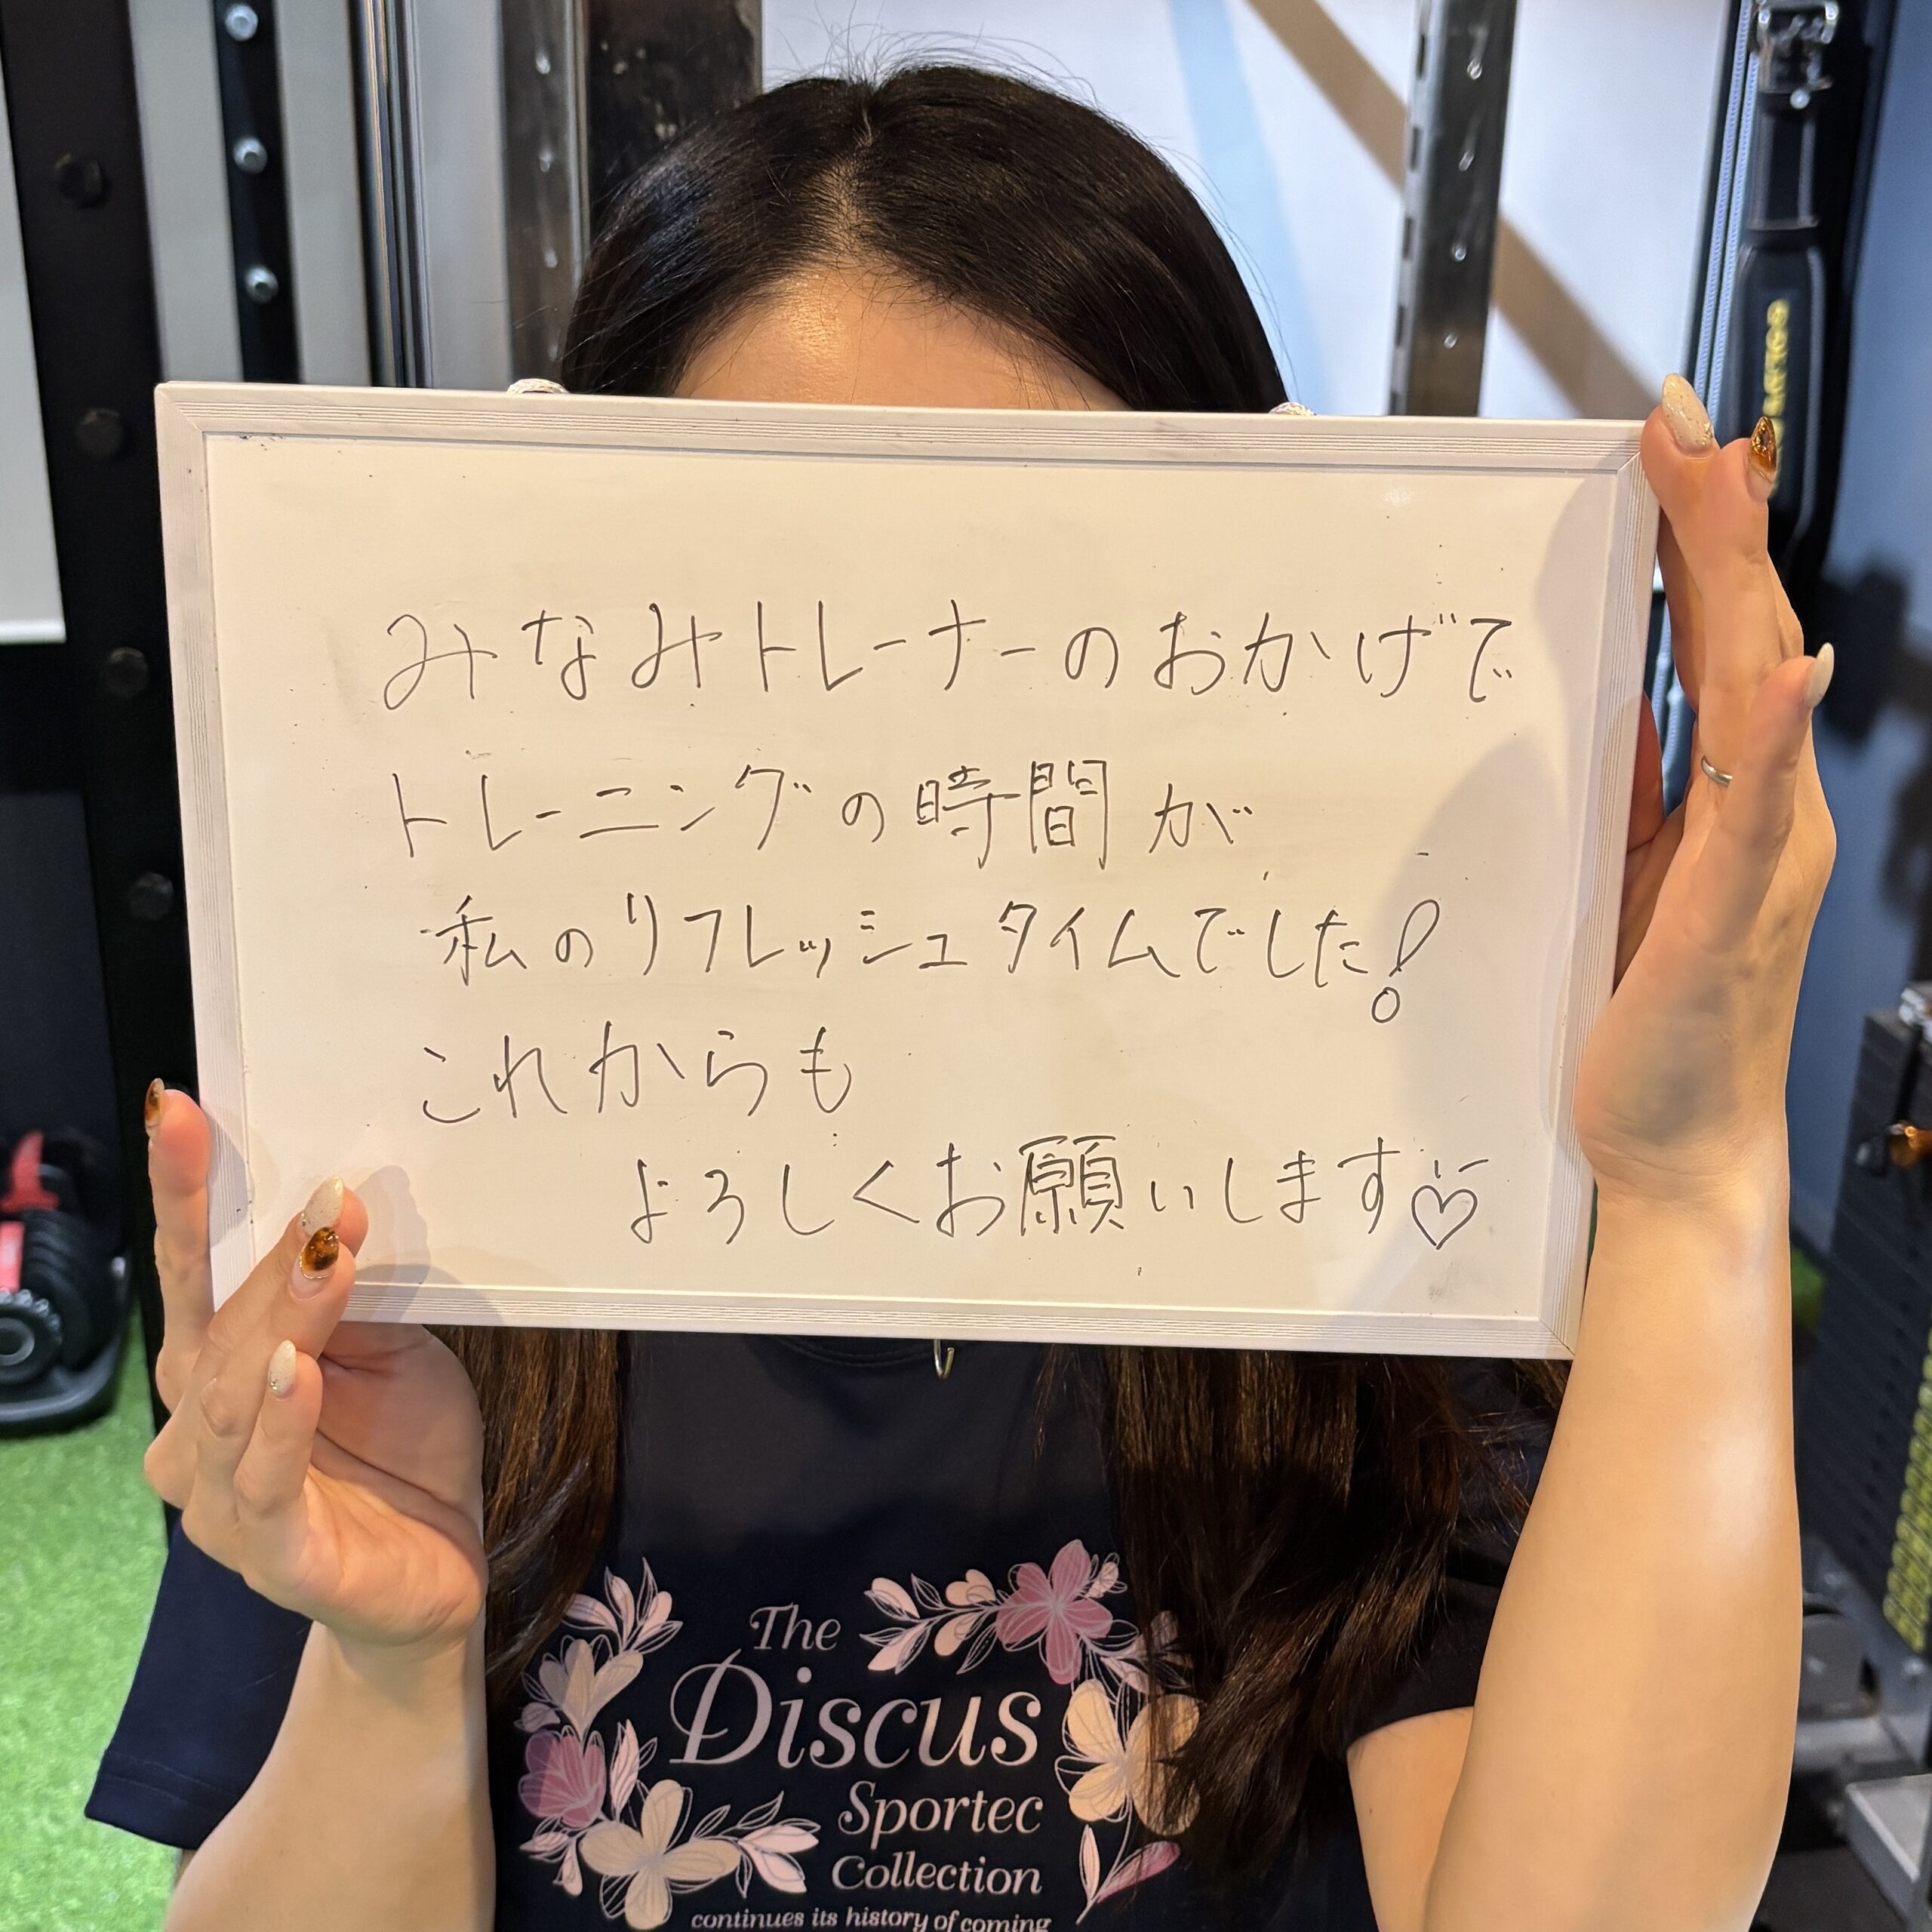 みなみトレーナーのおかげで
トレーニングの時間が
私のリフレッシュタイムでした!
これからも
よろしくお願いします♡
The
Discus
Sportec
Collection
continues its history of coming